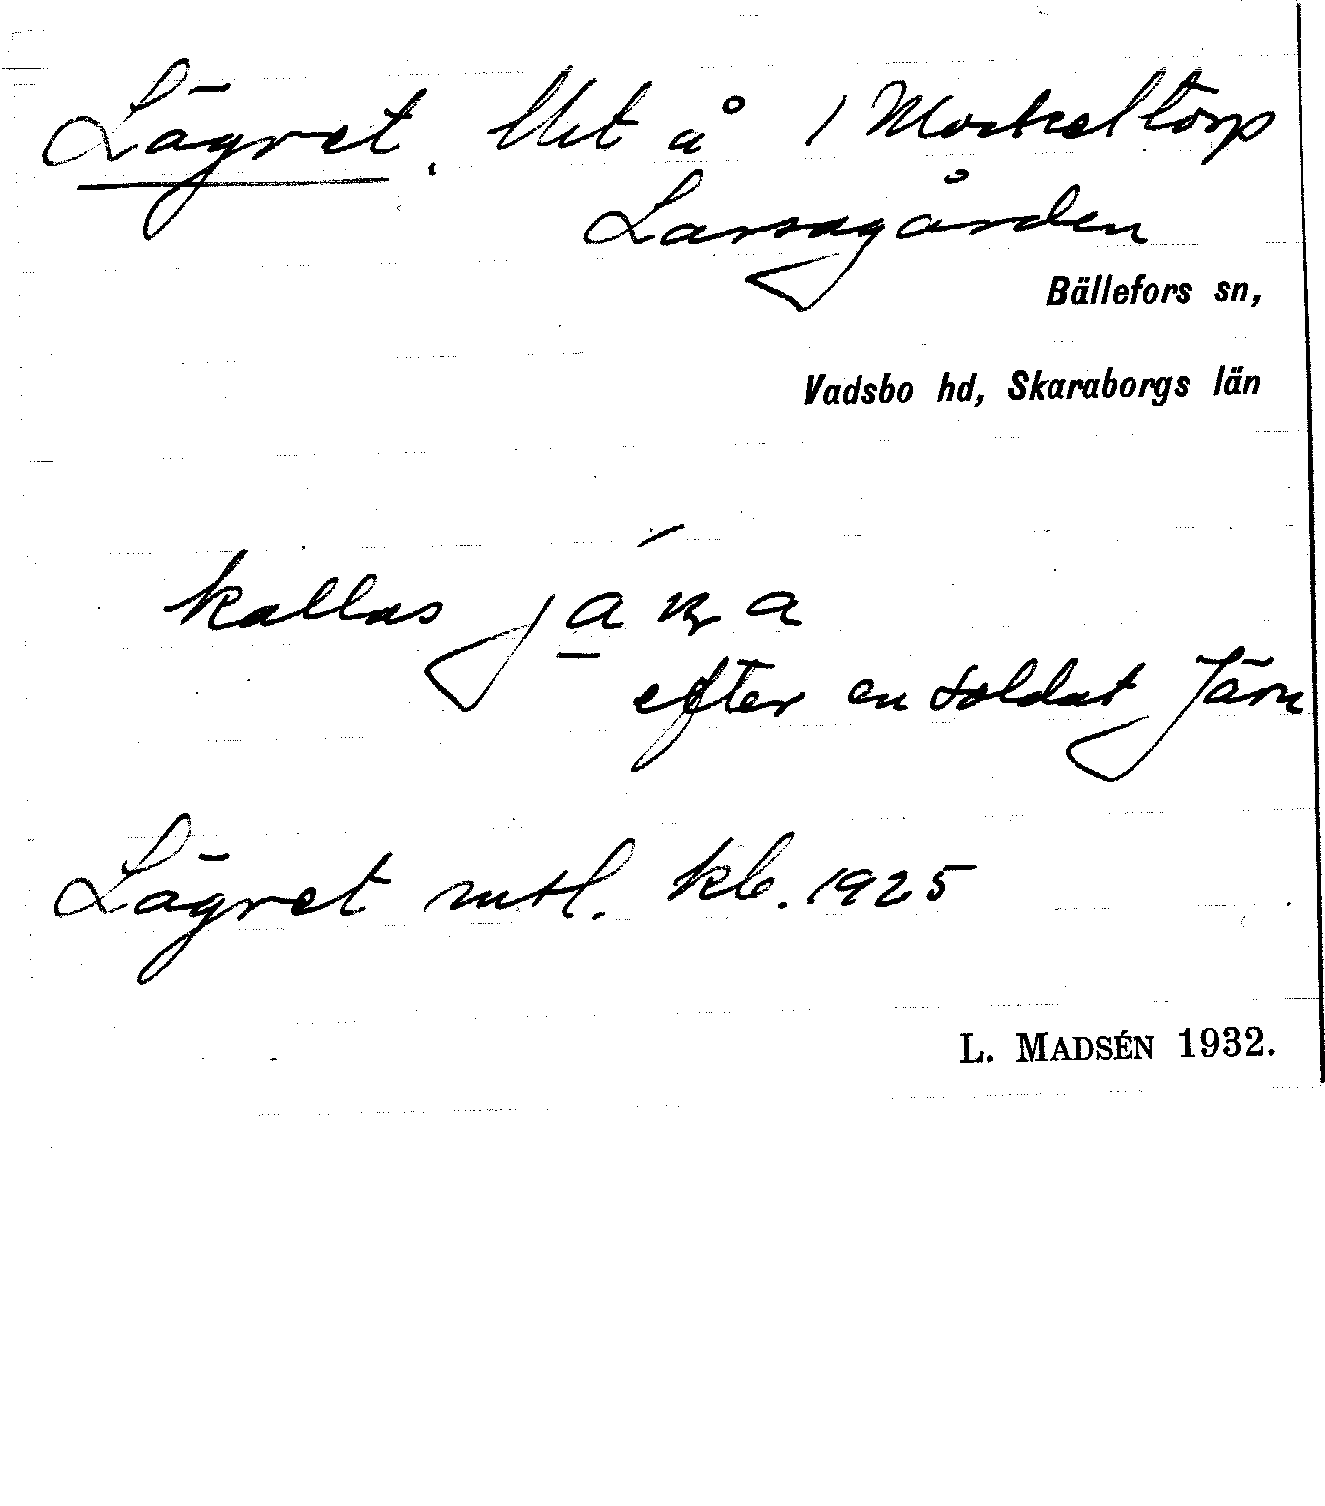 Lägret. Utt å 1 Mockeltorp
Larsagården
Bällefors sn,
Vadsbo hd, Skaraborgs län
kallas
efter en soldat Järn
Lägret mtl. kb. 1925
L. MADSÉN 1932.